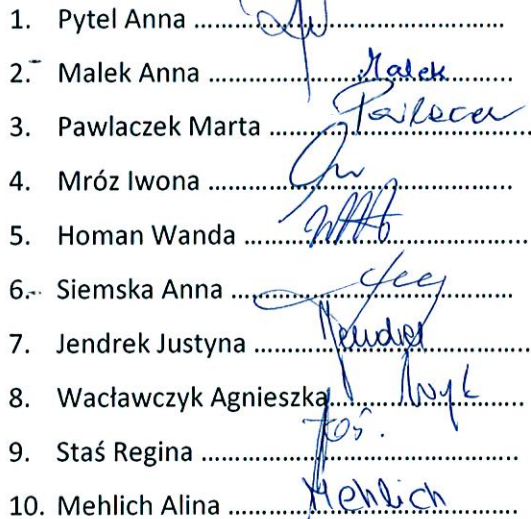 1. Pytel Anna ........................................
2. Malek Anna .................... Malek
3. Pawlaczek Marta ....................
4. Mróz Iwona ........................................
5. Homan Wanda ........................................
6. Siemska Anna ........................................
7. Jendrek Justyna ........................................
8. Wacławczyk Agnieszka ....................
9. Staś Regina ........................................
10. Mehlich Alina .................... Mehlich